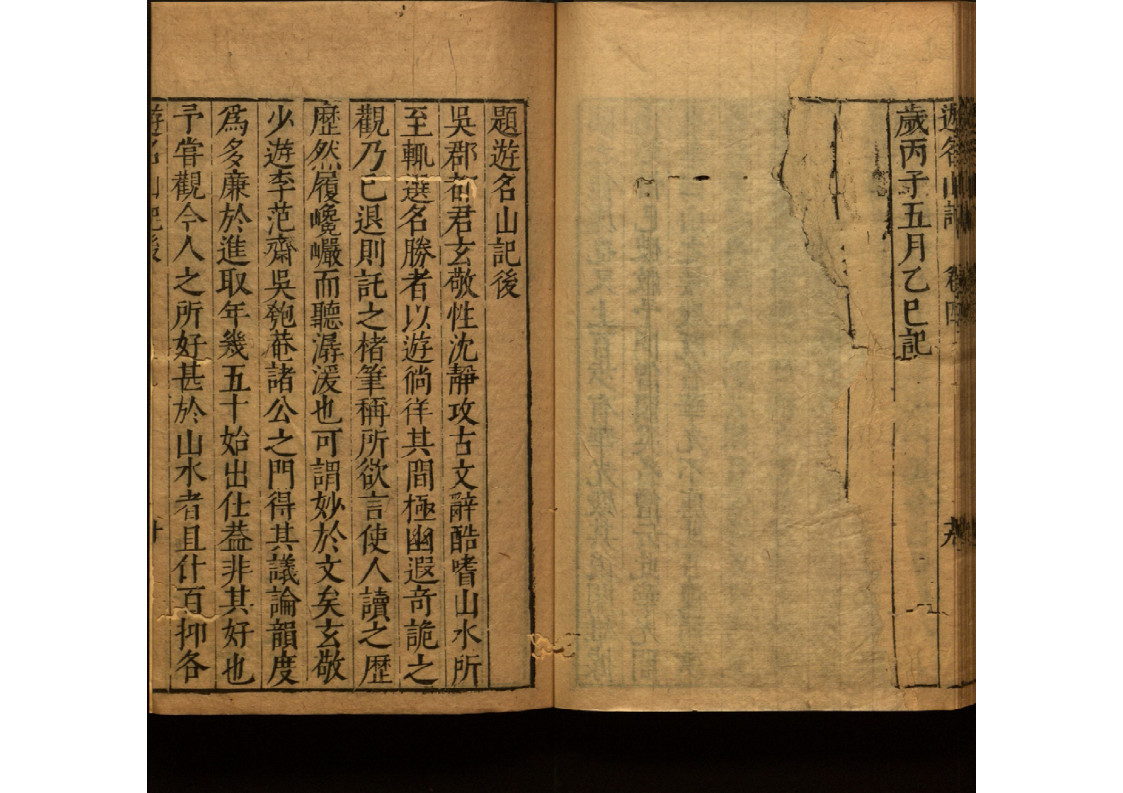 遊名山記 卷四 九
歲丙子五月乙巳記
題遊名山記後
吳郡都君玄敬性沈靜攻古文辭酷嗜山水所
至輒選名勝者以遊徜徉其間極幽遐奇詭之
觀乃已退則託之楮筆稱所欲言使人讀之歷
歷然履巉巖而聽潺湲也可謂妙於文矣玄敬
少遊李范齋吳匏菴諸公之門得其議論韻度
為多廉於進取年幾五十始出仕葢非其好也
予嘗觀今人之所好甚於山水者且什百抑各
遊名山記後